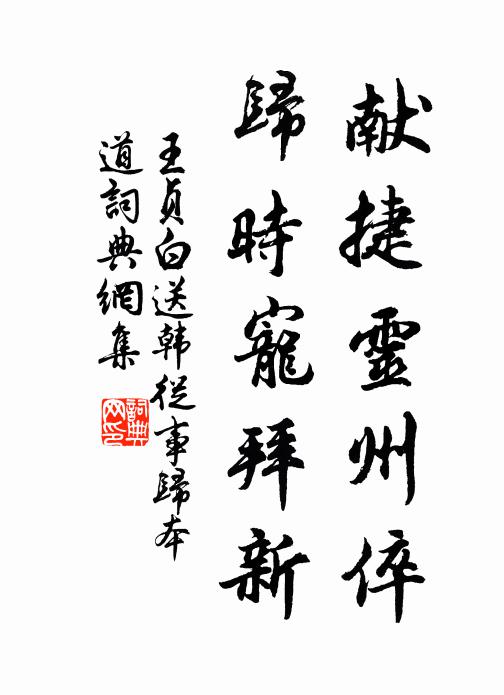 献捷靈州倅
歸時寵拜新
王貞白送韩従事歸本
道詞典網集
詞典网印